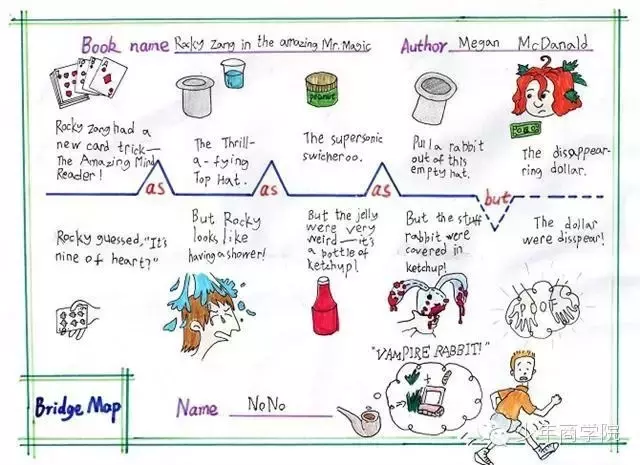 Book name Rocky Zang in the amazing Mr. Magic
Author Megan McDanald
Rocky Zang had a
new card trick—
The Amazing Mind
Reader!
The Thrill-
a-fying
Top Hat.
The supersonic
swicheroo.
Pull a rabbit
out of this
empty hat.
The disappear-
ring dollar.
as
as
as
but
Rocky guessed,"It's
nine of heart?"
But Rocky
looks like
having a shower!
But the jelly
were very
weird—it's
a bottle of
ketchup!
But the stuff
rabbit were
covered in
ketchup!
The dollar
were disspear!
SPOOFS
"VAMPIRE RABBIT!"
Bridge Map
Name NoNo
少年商学院